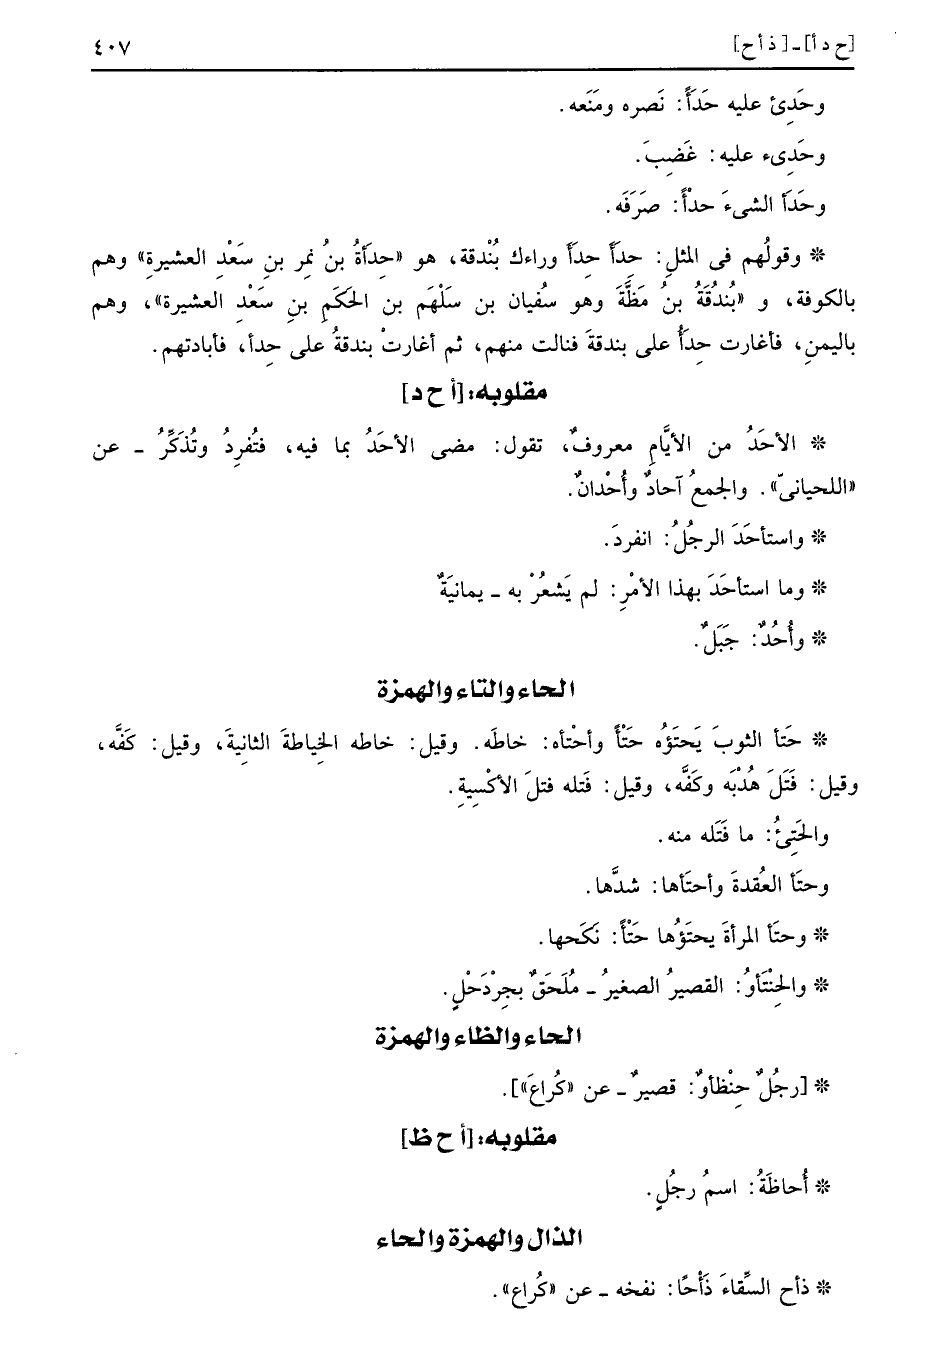 [ح د أ] ـ [ذ أ ح]
٤٠٧
وحَدِئ عليه حَدَأً: نَصره ومَنَعه.
وحَدِىء عليه: غَضِبَ.
وحَدَأ الشىءَ حدْأً: صرَفَه.
* وقولُهم فى المثلِ: حِدَأَ حِدَأَ وراءك بُنْدقة، هو «حِدَأةُ بنُ نمِر بنِ سَعْدِ العشيرةِ» وهم
بالكوفة، و «بُندُقَةُ بنُ مَظَّةَ وهو سفُيان بن سَلْهَم بن الحَكَمِ بنِ سَعْدِ العشيرة»، وهم
باليمنِ، فأغارت حِدَأُ على بندقةَ فنالت منهم، ثم أغارتْ بندقةُ على حِدأ، فأبادتهم.
مقلوبه: [أ ح د]
* الأحَدُ من الأيَّامِ معروفٌ، تقول: مضى الأحَدُ بما فيه، فتُفرِدُ وتُذَكِّرُ ـ عن
«اللحيانىّ». والجمعُ آحادٌ وأُحْدانٌ.
* واستأحَدَ الرجُلُ: انفردَ.
* وما استأحَدَ بهذا الأمْرِ: لم يَشعُرْ به ـ يمانيَةٌ
* وأُحُدٌ: جَبَلٌ.
الحاء والتاء والهمزة
* حَتَأ الثوبَ يَحتَؤُه حَتْأً وأحْتأه: خاطَه. وقيل: خاطه الخِياطةَ الثانِيةَ، وقيل: كَفَّه،
وقيل: فَتَلَ هُدْبَه وكَفَّه، وقيل: فَتله فتلَ الأكْسِيةِ.
والحَتِئُ: ما فَتَله منه.
وحتَأ العُقدةَ وأحتَأها: شدَّها.
* وحتَأ المرأةَ يحتَؤُها حَتْأً: نَكَحها.
* والحِنْتَأوُ: القصيرُ الصغيرُ ـ مُلَحَقٌ بجِرْدَحْلٍ.
الحاء والظاء والهمزة
* [رجُلٌ حِنْظأوٌ: قصيرٌ ـ عن «كُراعَ»].
مقلوبه: [أ ح ظ]
* أُحاظَةُ: اسمُ رجُلٍ.
الذال والهمزة والحاء
* ذأح السِّقاءَ ذَأْحًا: نفخه ـ عن «كُراع».